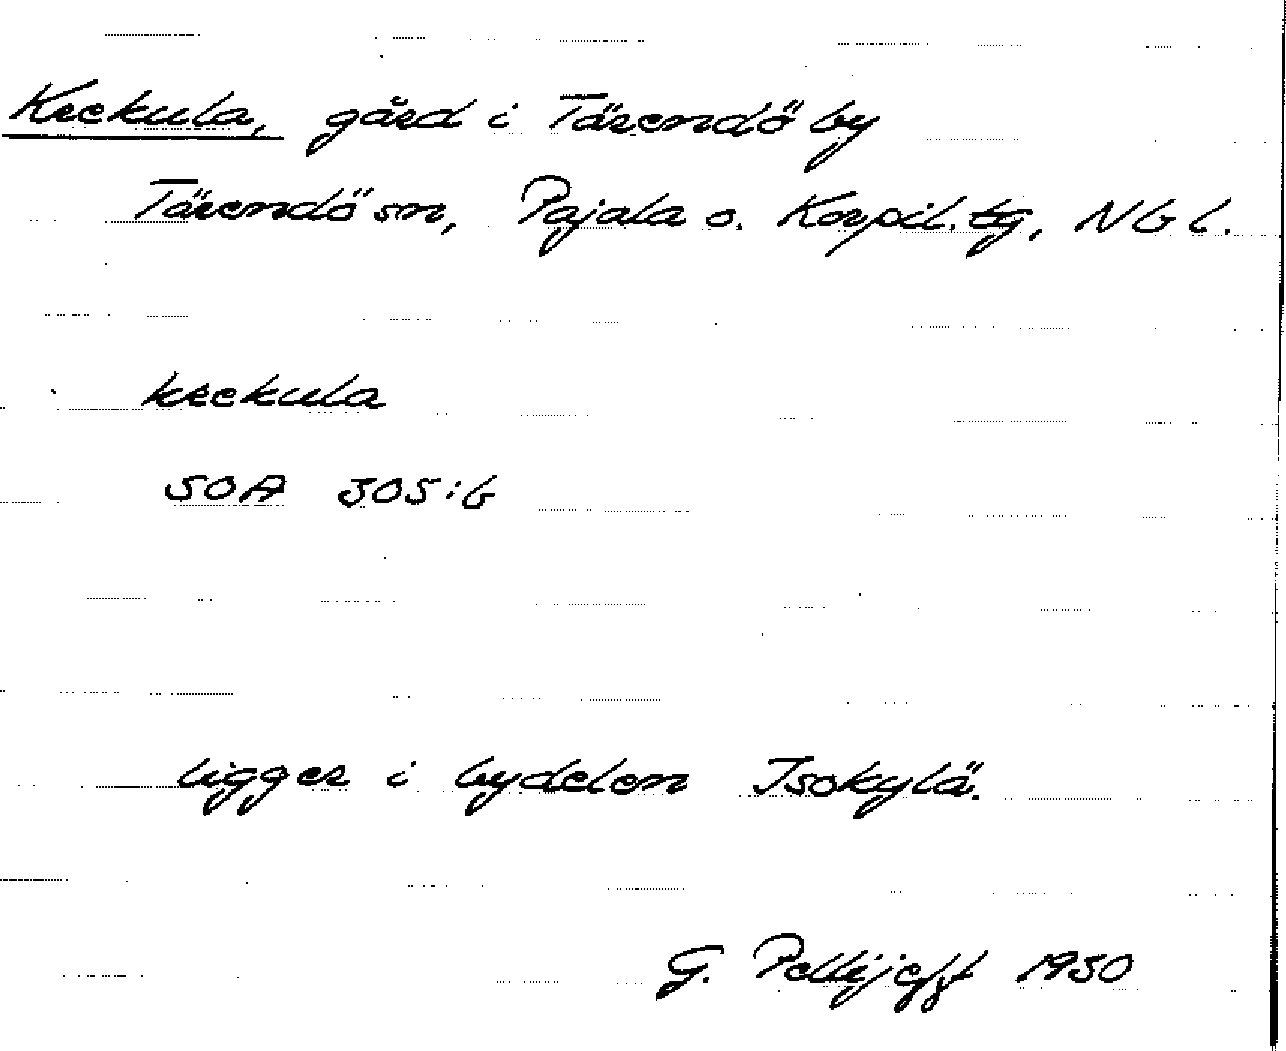 Kreekula, gård i Tärendö by
Tärendö sn, Pajala o. Korpil. tg, NB l.
kreekula
SOA 305:6
ligger i bydelen Isokylä.
G. Pellijeff 1950